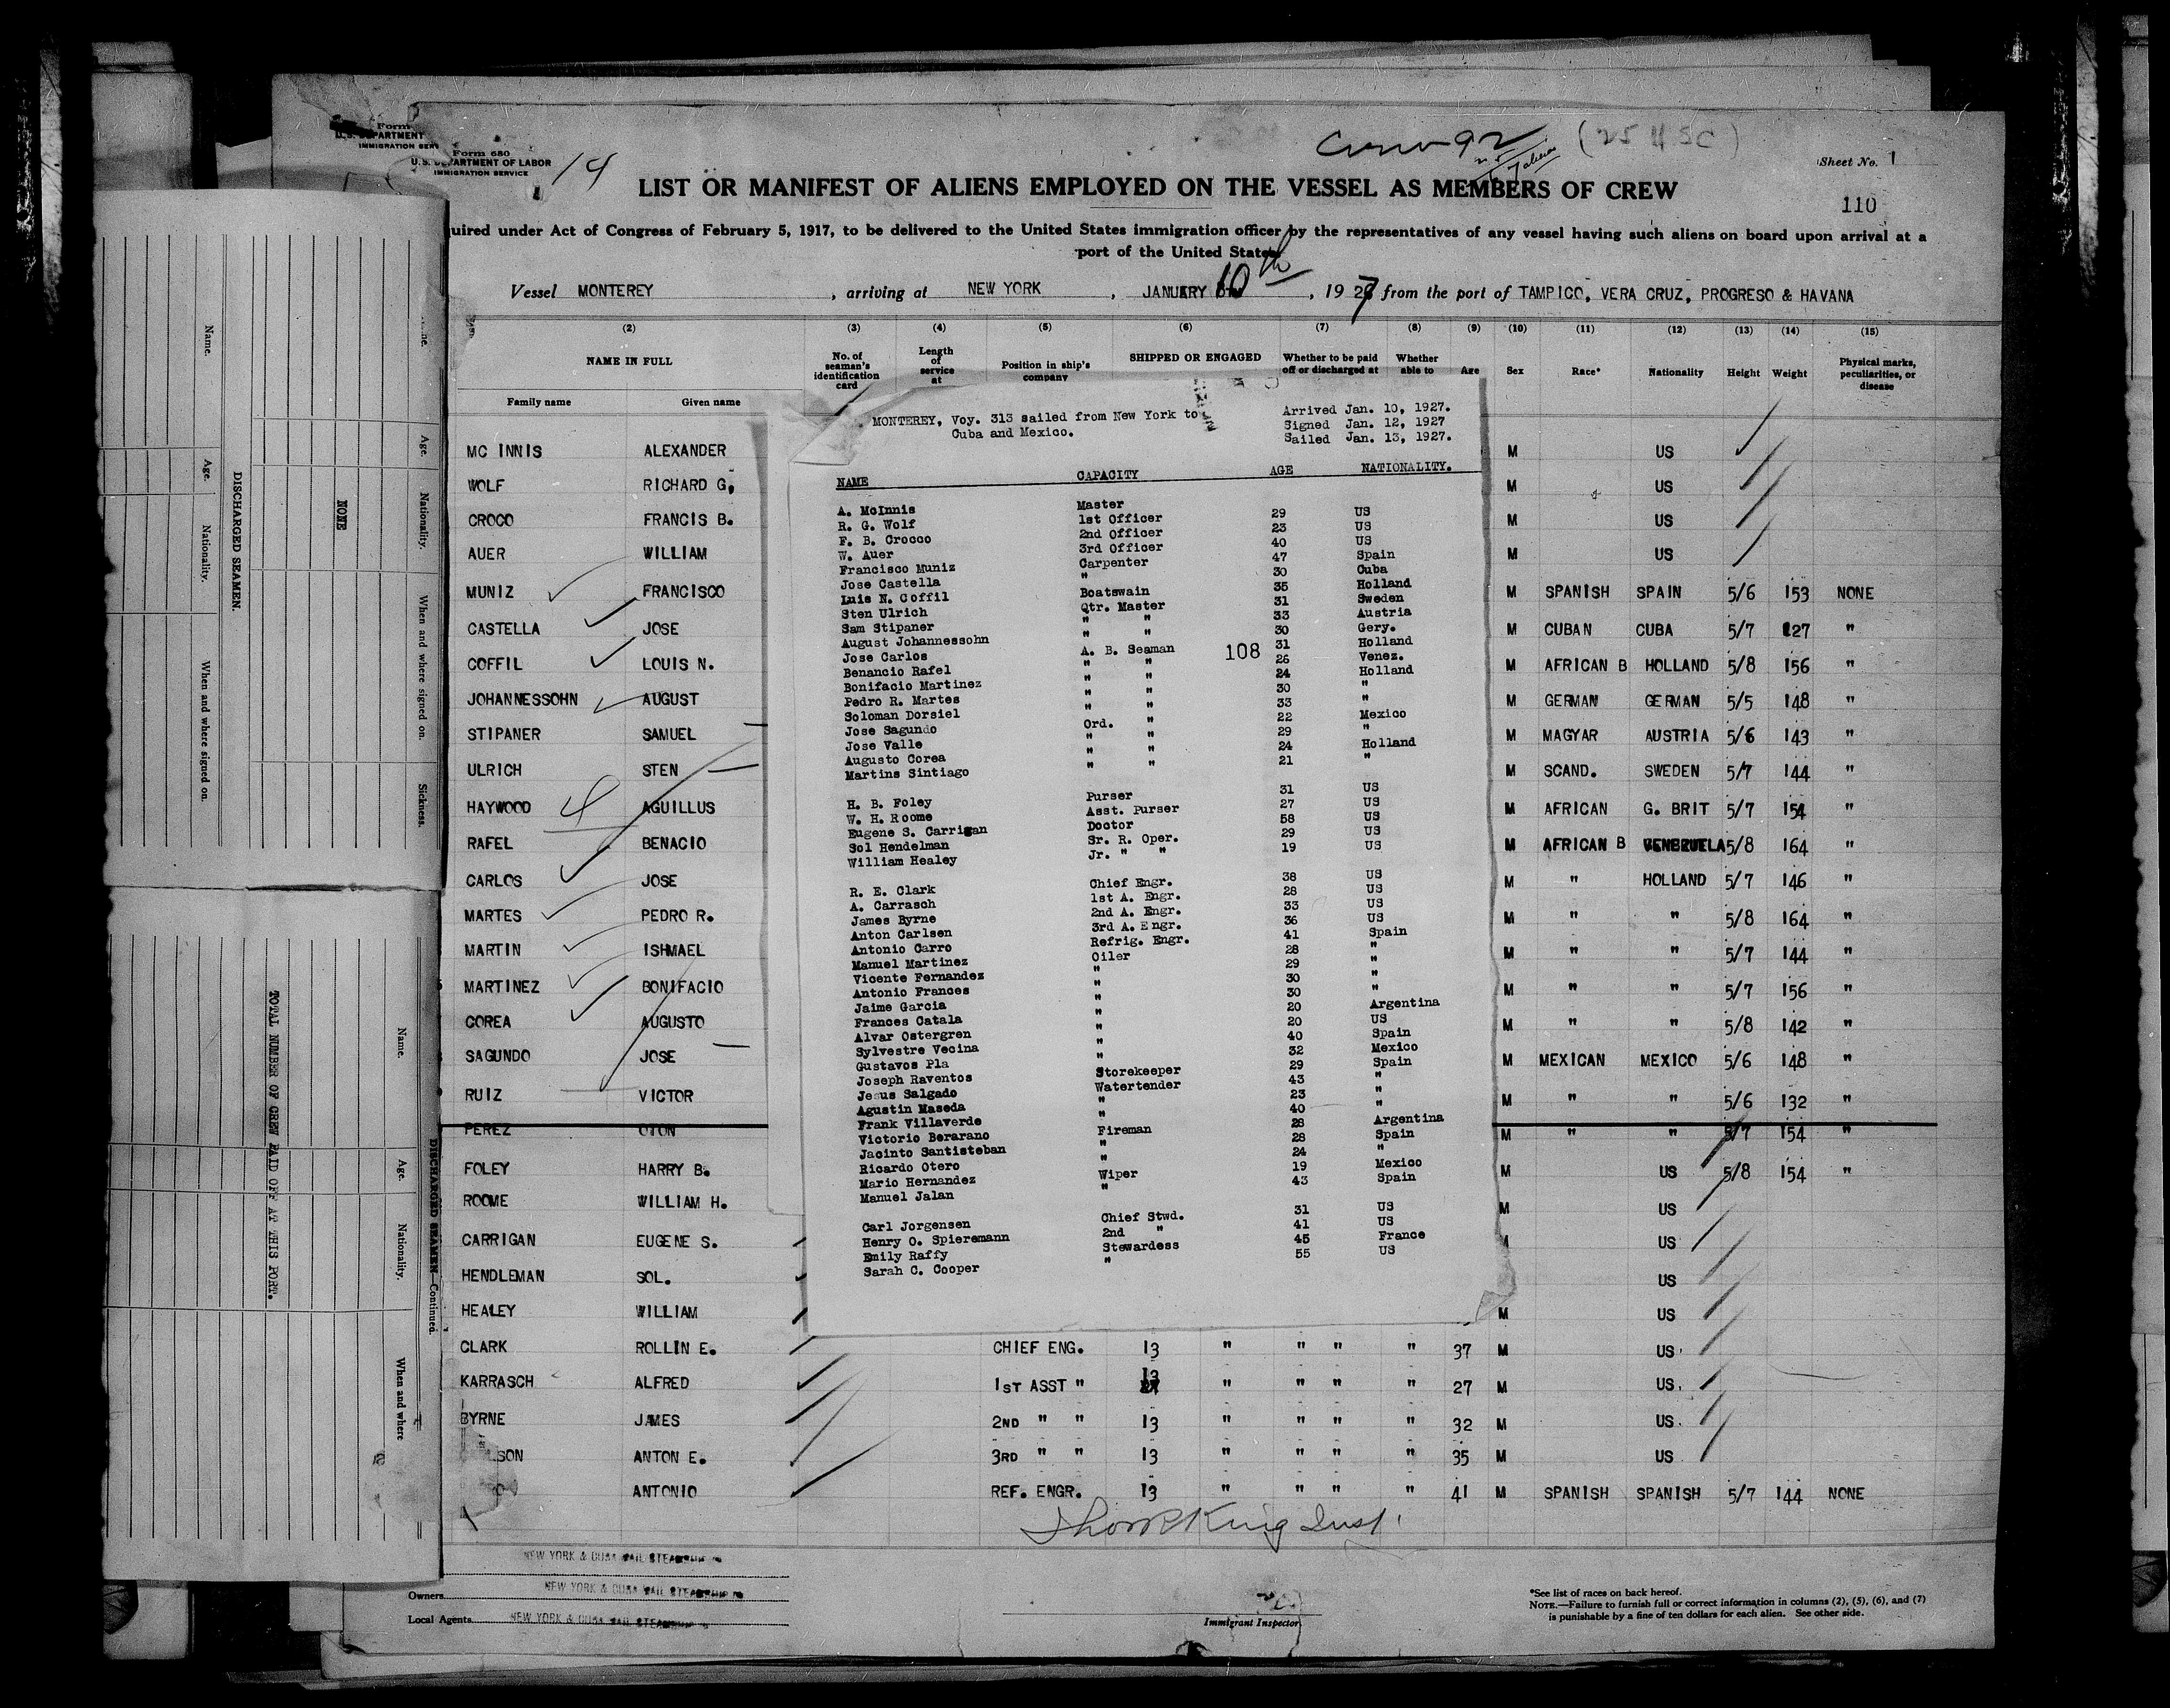 Form 680
U.S. DEPARTMENT OF LABOR
IMMIGRATION SERVICE
14
Crew 92
(25 USC)
Sheet No. 1
LIST OR MANIFEST OF ALIENS EMPLOYED ON THE VESSEL AS MEMBERS OF CREW
110
uired under Act of Congress of February 5, 1917, to be delivered to the United States immigration officer by the representatives of any vessel having such aliens on board upon arrival at a
port of the United States
Vessel MONTEREY, arriving at NEW YORK, JANUARY 10th, 1927 from the port of TAMPICO, VERA CRUZ, PROGRESO & HAVANA
(2) (3) (4) (5) (6) (7) (8) (9) (10) (11) (12) (13) (14) (15)
NAME IN FULL
Family name Given name
No. of seaman's identification card
Length of service at
Position in ship's company
SHIPPED OR ENGAGED
Whether to be paid off or discharged at
Whether able to
Age Sex Race* Nationality Height Weight
Physical marks, peculiarities, or disease
MC INNIS ALEXANDER M US
WOLF RICHARD G, M US
CROCO FRANCIS B. M US
AUER WILLIAM M US
MUNIZ FRANCISCO M SPANISH SPAIN 5/6 153 NONE
CASTELLA JOSE M CUBAN CUBA 5/7 127 "
COFFIL LOUIS N. M AFRICAN B HOLLAND 5/8 156 "
JOHANNESSOHN AUGUST M GERMAN GERMAN 5/5 148 "
STIPANER SAMUEL M MAGYAR AUSTRIA 5/6 143 "
ULRICH STEN M SCAND. SWEDEN 5/7 144 "
HAYWOOD AGUILLUS M AFRICAN G. BRIT 5/7 154 "
RAFEL BENACIO M AFRICAN B VENEZUELA 5/8 164 "
CARLOS JOSE M " HOLLAND 5/7 146 "
MARTES PEDRO R. M " " 5/8 164 "
MARTIN ISHMAEL M " " 5/7 144 "
MARTINEZ BONIFACIO M " " 5/7 156 "
COREA AUGUSTO M " " 5/8 142 "
SAGUNDO JOSE M MEXICAN MEXICO 5/6 148 "
RUIZ VICTOR M " " 5/6 132 "
PEREZ OTON M " " 5/7 154 "
FOLEY HARRY B. M US 5/8 154 "
ROOME WILLIAM H. M US
CARRIGAN EUGENE S. US
HENDLEMAN SOL. US
HEALEY WILLIAM M US
CLARK ROLLIN E. CHIEF ENG. 13 " " " " 37 M US
KARRASCH ALFRED 1ST ASST " 13 " " " " 27 M US.
BYRNE JAMES 2ND " " 13 " " " " 32 M US.
SON ANTON E. 3RD " " 13 " " " " 35 M US
ANTONIO REF. ENGR. 13 " " " " 41 M SPANISH SPANISH 5/7 144 NONE
MONTEREY, Voy. 313 sailed from New York to
Cuba and Mexico.
Arrived Jan. 10, 1927.
Signed Jan. 12, 1927
Sailed Jan. 13, 1927.
NAME CAPACITY AGE NATIONALITY.
A. McInnis Master
R. G. Wolf 1st Officer 29 US
F. B. Crocco 2nd Officer 23 US
W. Auer 3rd Officer 40 US
Francisco Muniz Carpenter 47 Spain
Jose Castella " 30 Cuba
Luis N. Coffil Boatswain 35 Holland
Sten Ulrich Qtr. Master 31 Sweden
Sam Stipaner " " 33 Austria
August Johannessohn " " 30 Gery.
Jose Carlos A. B. Seaman 31 Holland
108
Benancio Rafel " " 26 Venez.
Bonifacio Martinez " " 24 Holland
Pedro R. Martes " " 30 "
Soloman Dorsiel " " 33 "
Jose Sagundo Ord. " 22 Mexico
Jose Valle " " 29 "
Augusto Corea " " 24 Holland
Martins Sintiago " " 21 "
H. B. Foley Purser 31 US
W. H. Roome Asst. Purser 27 US
Eugene S. Carrigan Doctor 58 US
Sol Hendelman Sr. R. Oper. 29 US
William Healey Jr. " " 19 US
R. E. Clark Chief Engr. 38 US
A. Carrasch 1st A. Engr. 28 US
James Byrne 2nd A. Engr. 33 US
Anton Carlsen 3rd A. Engr. 36 US
Antonio Carro Refrig. Engr. 41 Spain
Manuel Martinez Oiler 28 "
Vicente Fernandez " 29 "
Antonio Frances " 30 "
Jaime Garcia " 30 "
Frances Catala " 20 Argentina
Alvar Ostergren " 20 US
Sylvestre Vecina " 40 Spain
Gustavos Pla " 32 Mexico
Joseph Raventos Storekeeper 29 Spain
Jesus Salgado Watertender 43 "
Agustin Maseda " 23 "
Frank Villaverde " 40 "
Victorio Berarano Fireman 28 Argentina
Jacinto Santisteban " 28 Spain
Ricardo Otero " 24 "
Mario Hernandez Wiper 19 Mexico
Manuel Jalan " 43 Spain
Carl Jorgensen Chief Stwd. 31 US
Henry O. Spieremann 2nd " 41 US
Emily Raffy Stewardess 45 France
Sarah C. Cooper " 55 US
NEW YORK & CUBA MAIL STEAMSHIP
Owners NEW YORK & CUBA MAIL STEAMSHIP
Local Agents NEW YORK & CUBA MAIL STEAMSHIP
Immigrant Inspector
*See list of races on back hereof.
NOTE.—Failure to furnish full or correct information in columns (2), (5), (6), and (7)
is punishable by a fine of ten dollars for each alien. See other side.
DISCHARGED SEAMEN.
Name. Age. Nationality. When and where signed on.
NONE
Age. Nationality. When and where signed on. Sickness.
DISCHARGED SEAMEN—Continued.
Name. Age. Nationality. When and where
TOTAL NUMBER OF CREW PAID OFF AT THIS PORT.